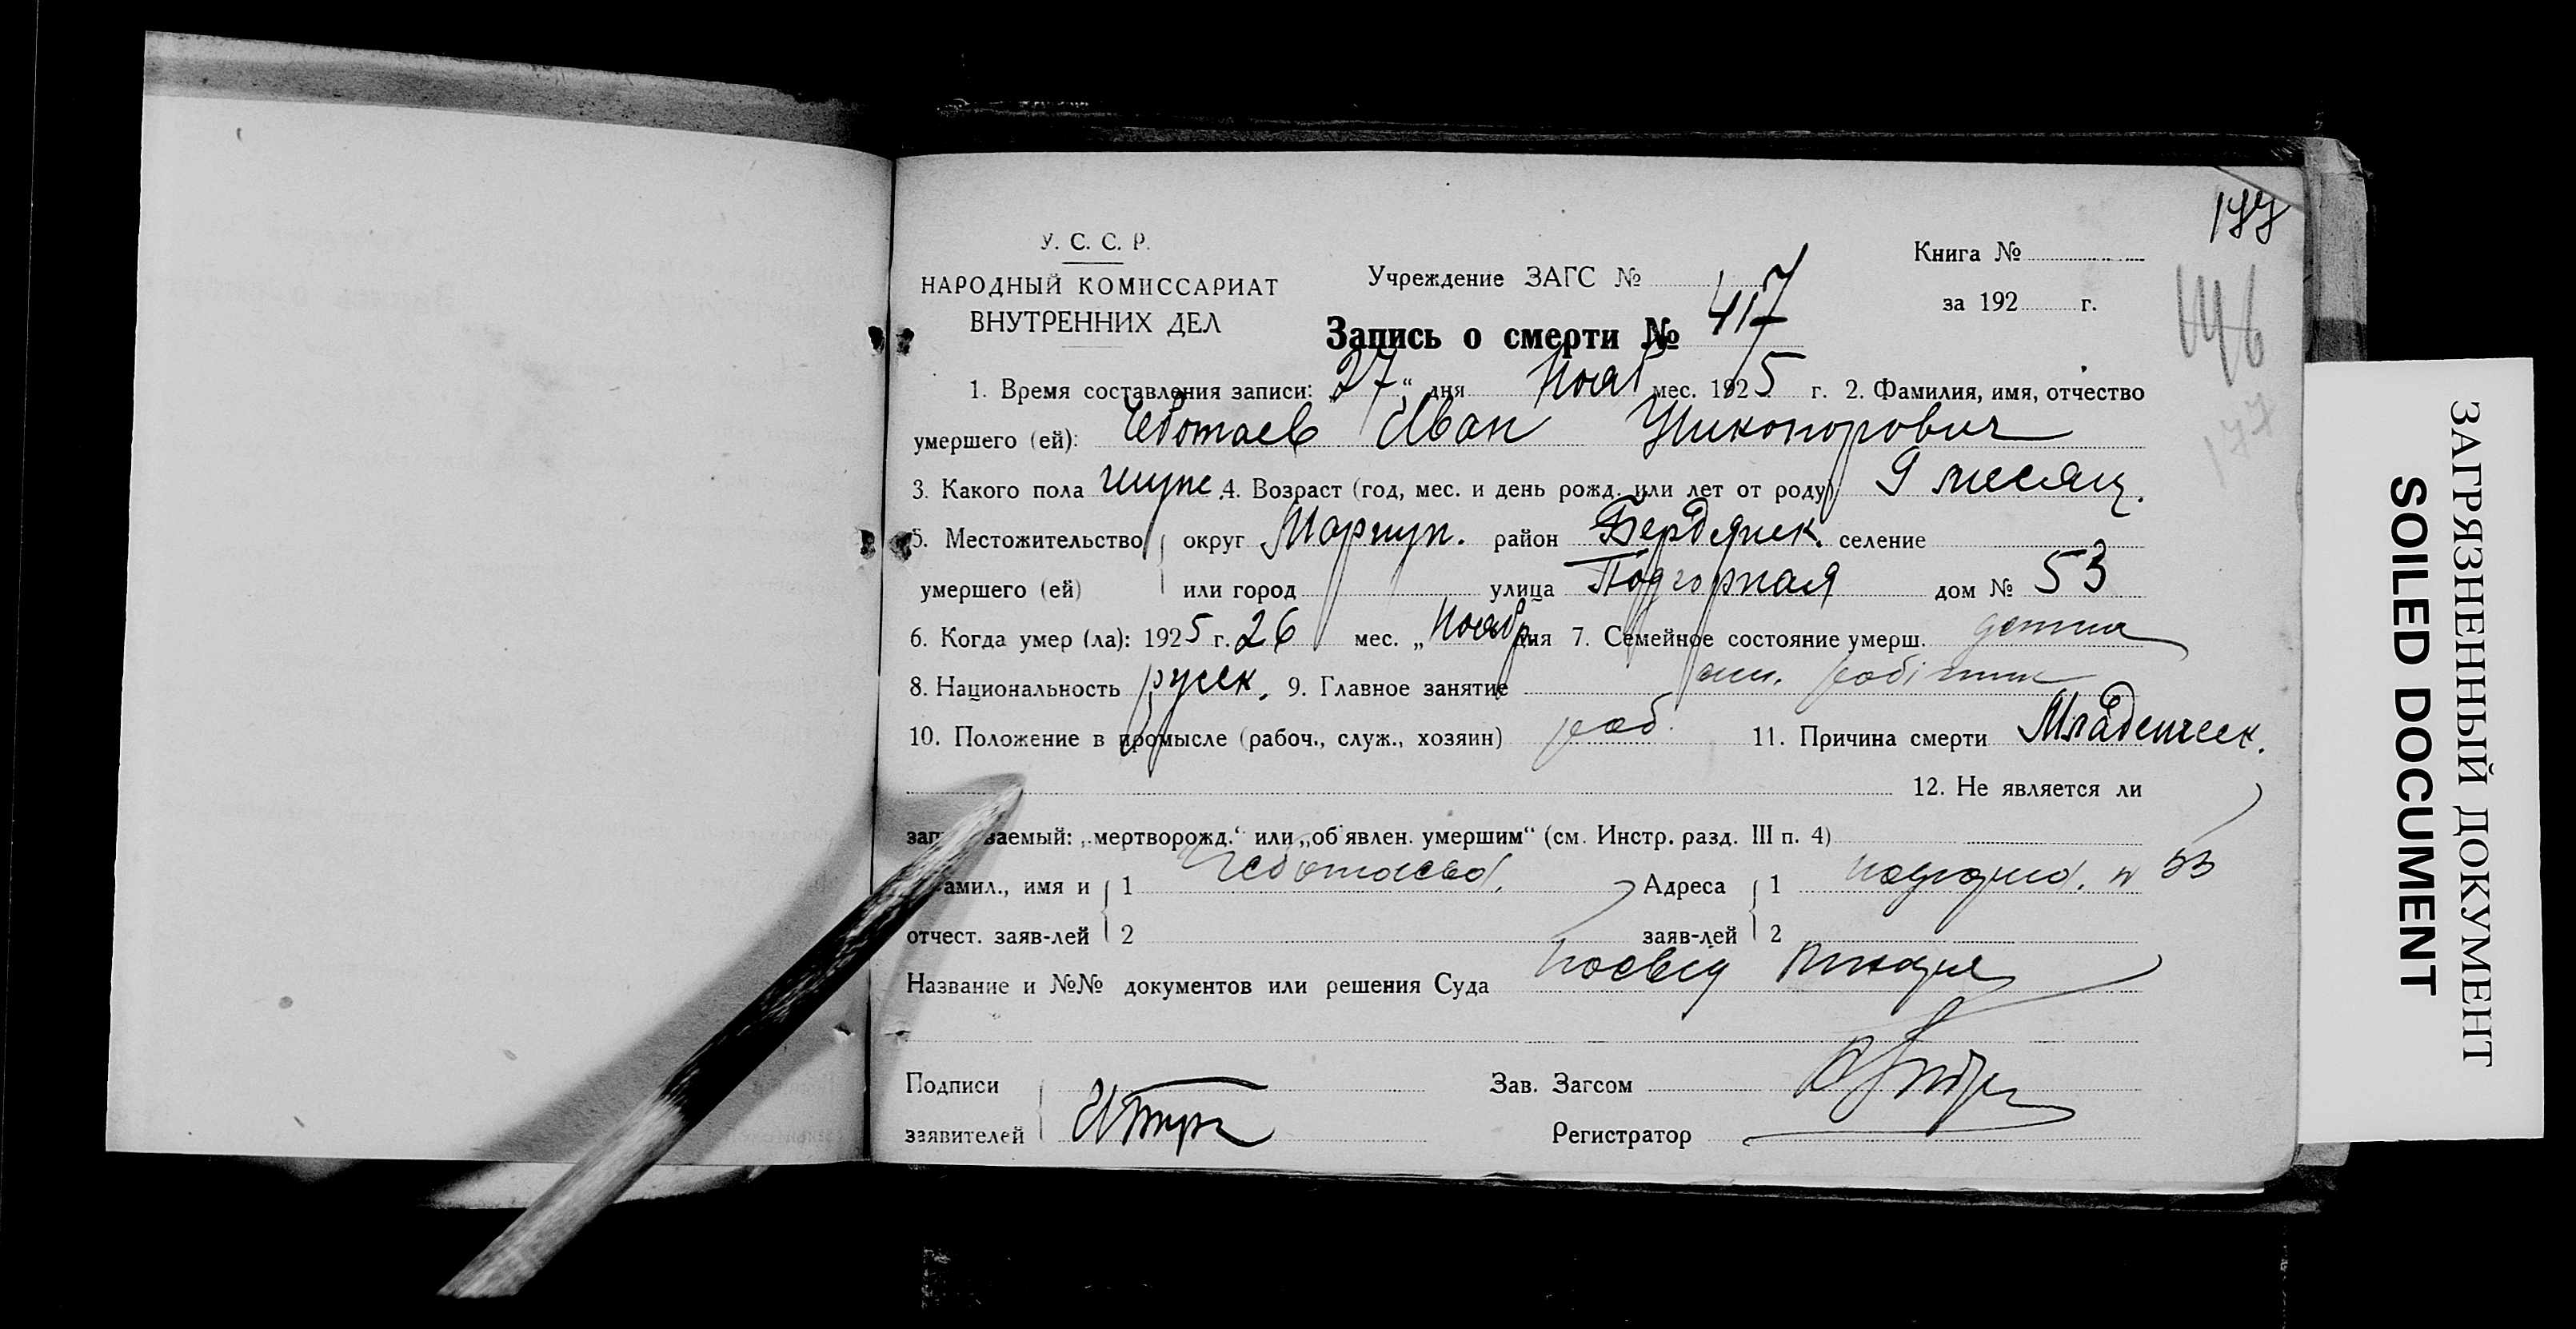 177
У. С. С. Р.
НАРОДНЫЙ КОМИССАРИАТ
ВНУТРЕННИХ ДЕЛ
Учреждение ЗАГС №
Книга №
за 192 г.
146
177
Запись о смерти № 417
1. Время составления записи: „27“ дня Нояб мес. 1925 г. 2. Фамилия, имя, отчество
умершего (ей): Чеботаев Иван Никонорович
3. Какого пола мужс. 4. Возраст (год, мес. и день рожд. или лет от роду) 9 месяц.
5. Местожительство округ Мариуп. район Бердянск. селение
умершего (ей) или город улица Подгорная дом № 53
6. Когда умер (ла): 1925 г. 26 мес. „ Ноябр дня 7. Семейное состояние умерш. детина
8. Национальность русск. 9. Главное занятие робітник
10. Положение в промысле (рабоч., служ., хозяин) роб. 11. Причина смерти Младенческ.
12. Не является ли
зап ваемый: „мертворожд.“ или „об'явлен. умершим“ (см. Инстр. разд. III п. 4)
амил., имя и 1 Чеботаева. Адреса 1 53
отчест. заяв-лей 2 заяв-лей 2
Название и №№ документов или решения Суда посвід
Подписи Зав. Загсом
заявителей Регистратор
ЗАГРЯЗНЕННЫЙ ДОКУМЕНТ
SOILED DOCUMENT